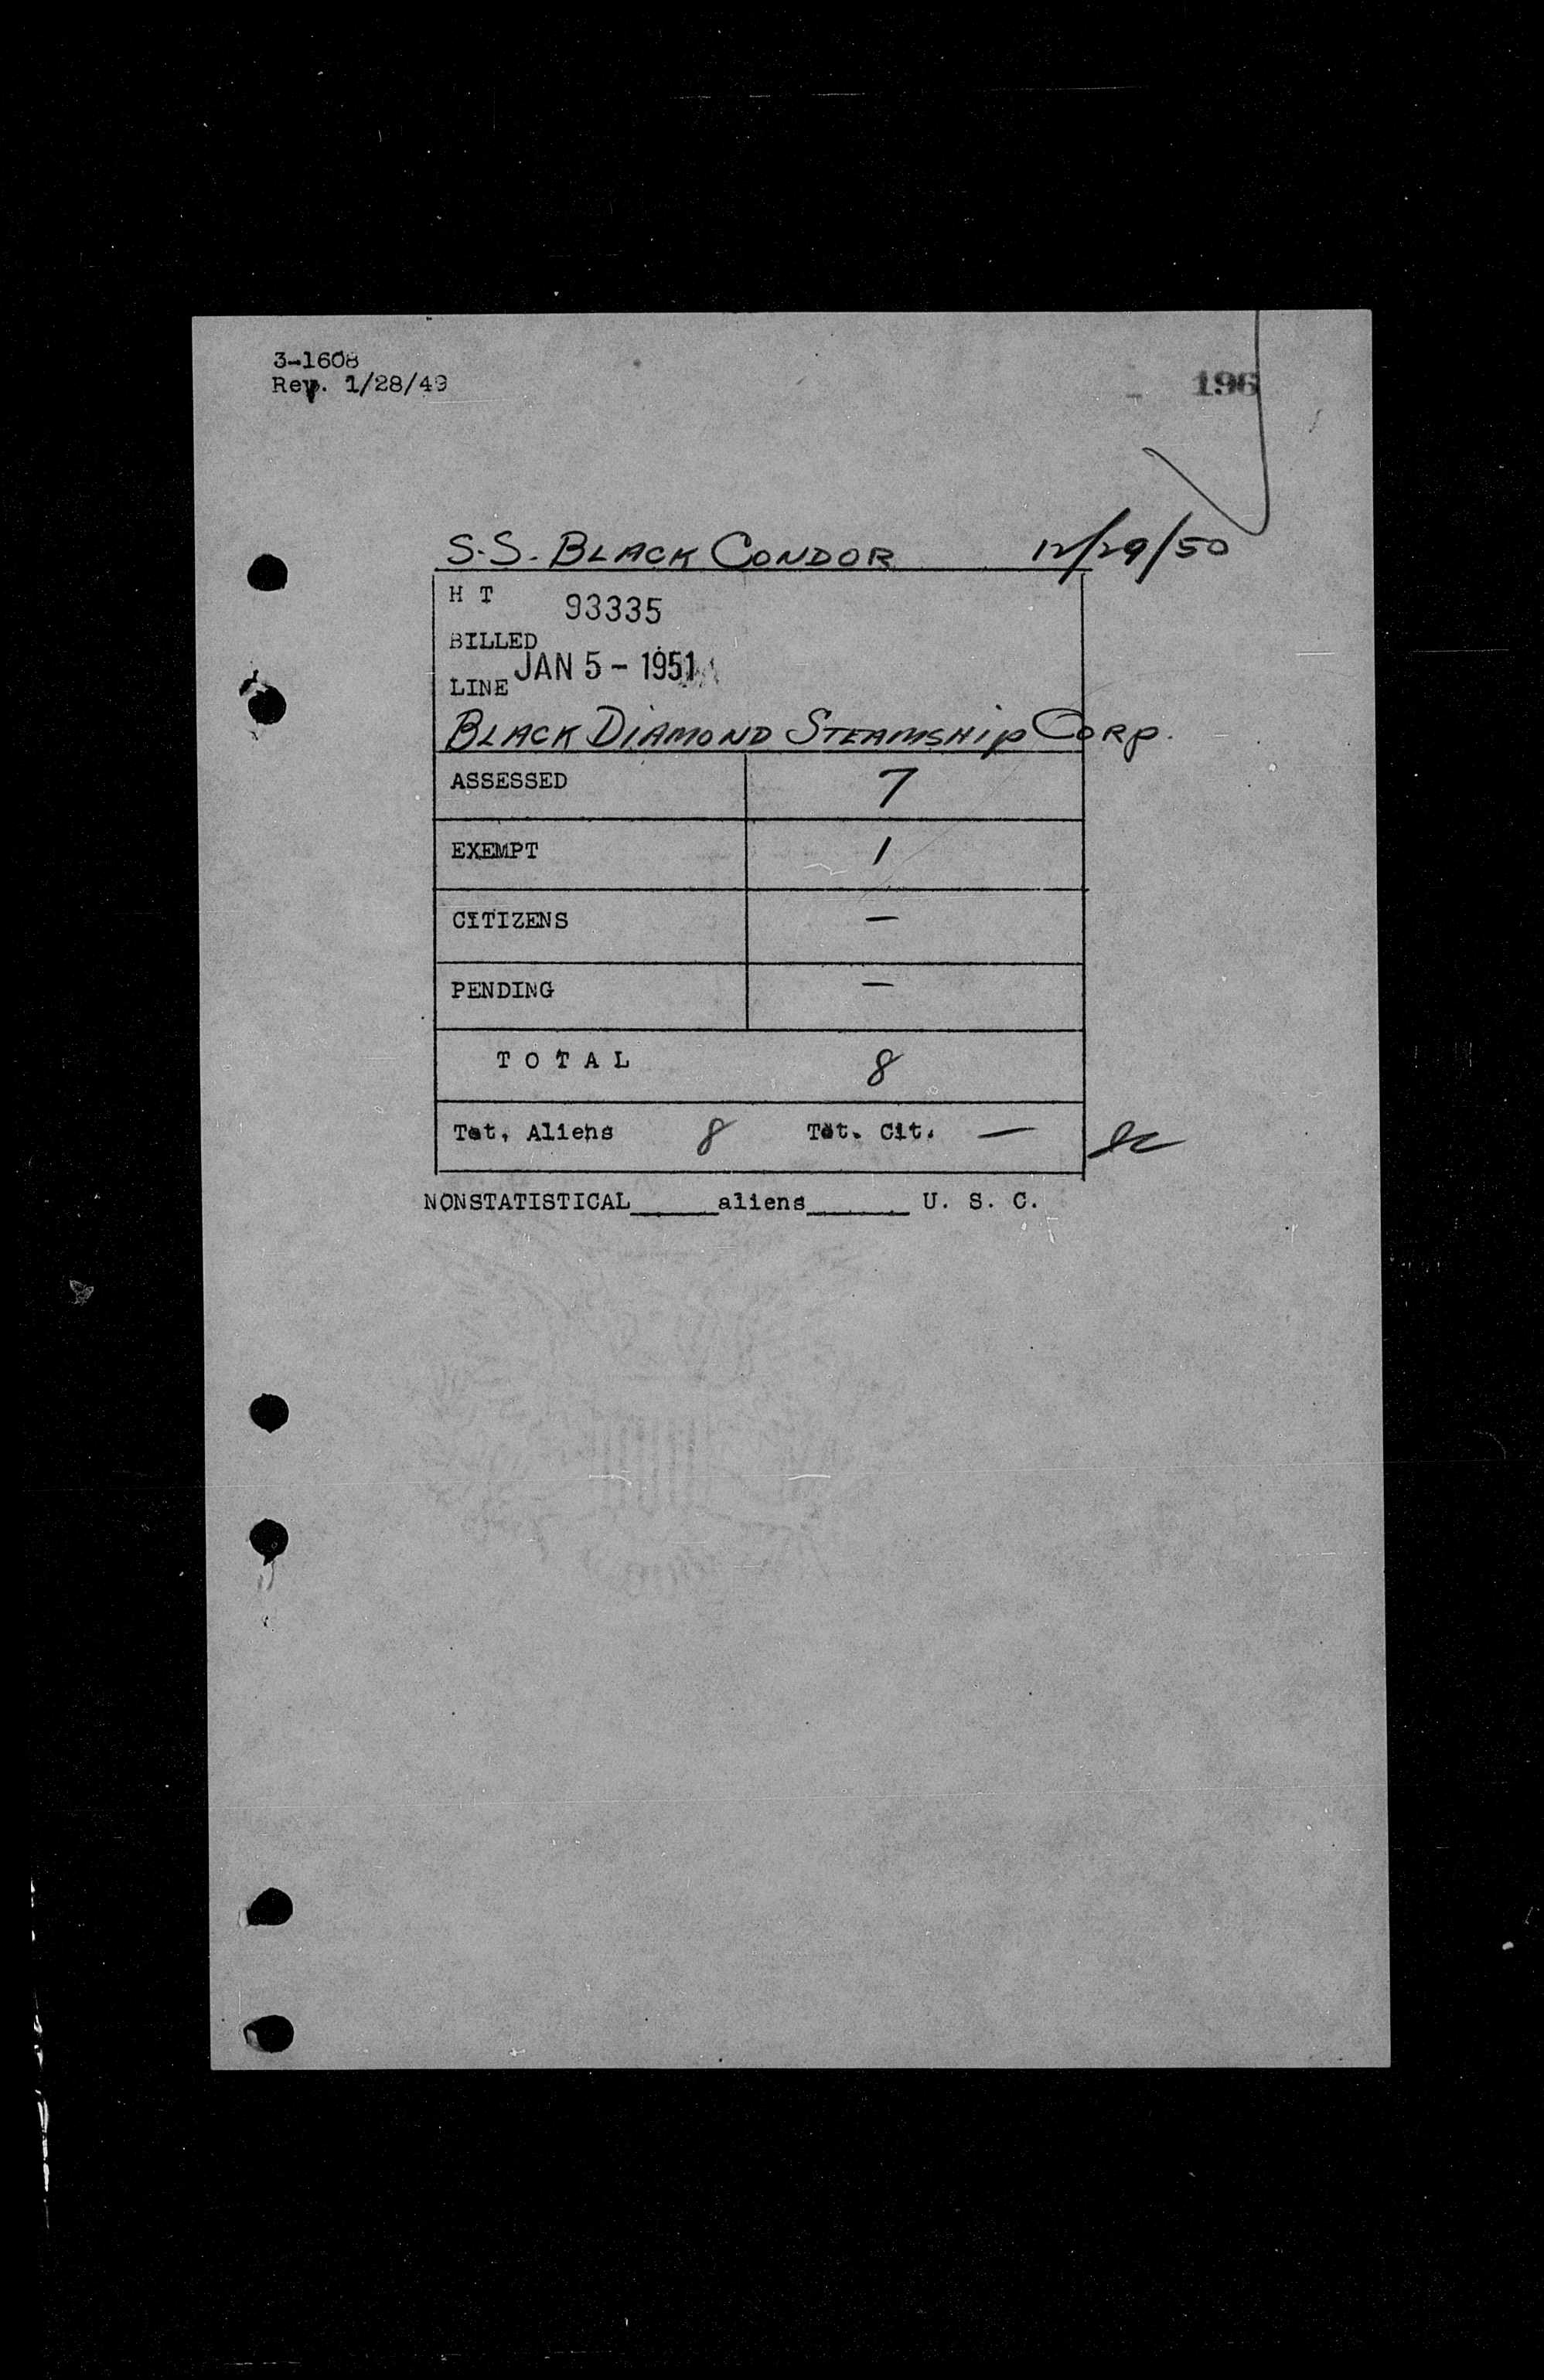 3-1608
Rev. 1/28/49
196
S.S. BLACK CONDOR 12/29/50
H T 93335
BILLED
JAN 5 - 1951
LINE
BLACK DIAMOND STEAMSHIP CORP.
ASSESSED 7
EXEMPT 1
CITIZENS —
PENDING —
T O T A L 8
Tot. Aliens 8 Tot. Cit. —
NONSTATISTICAL_____aliens______ U. S. C.